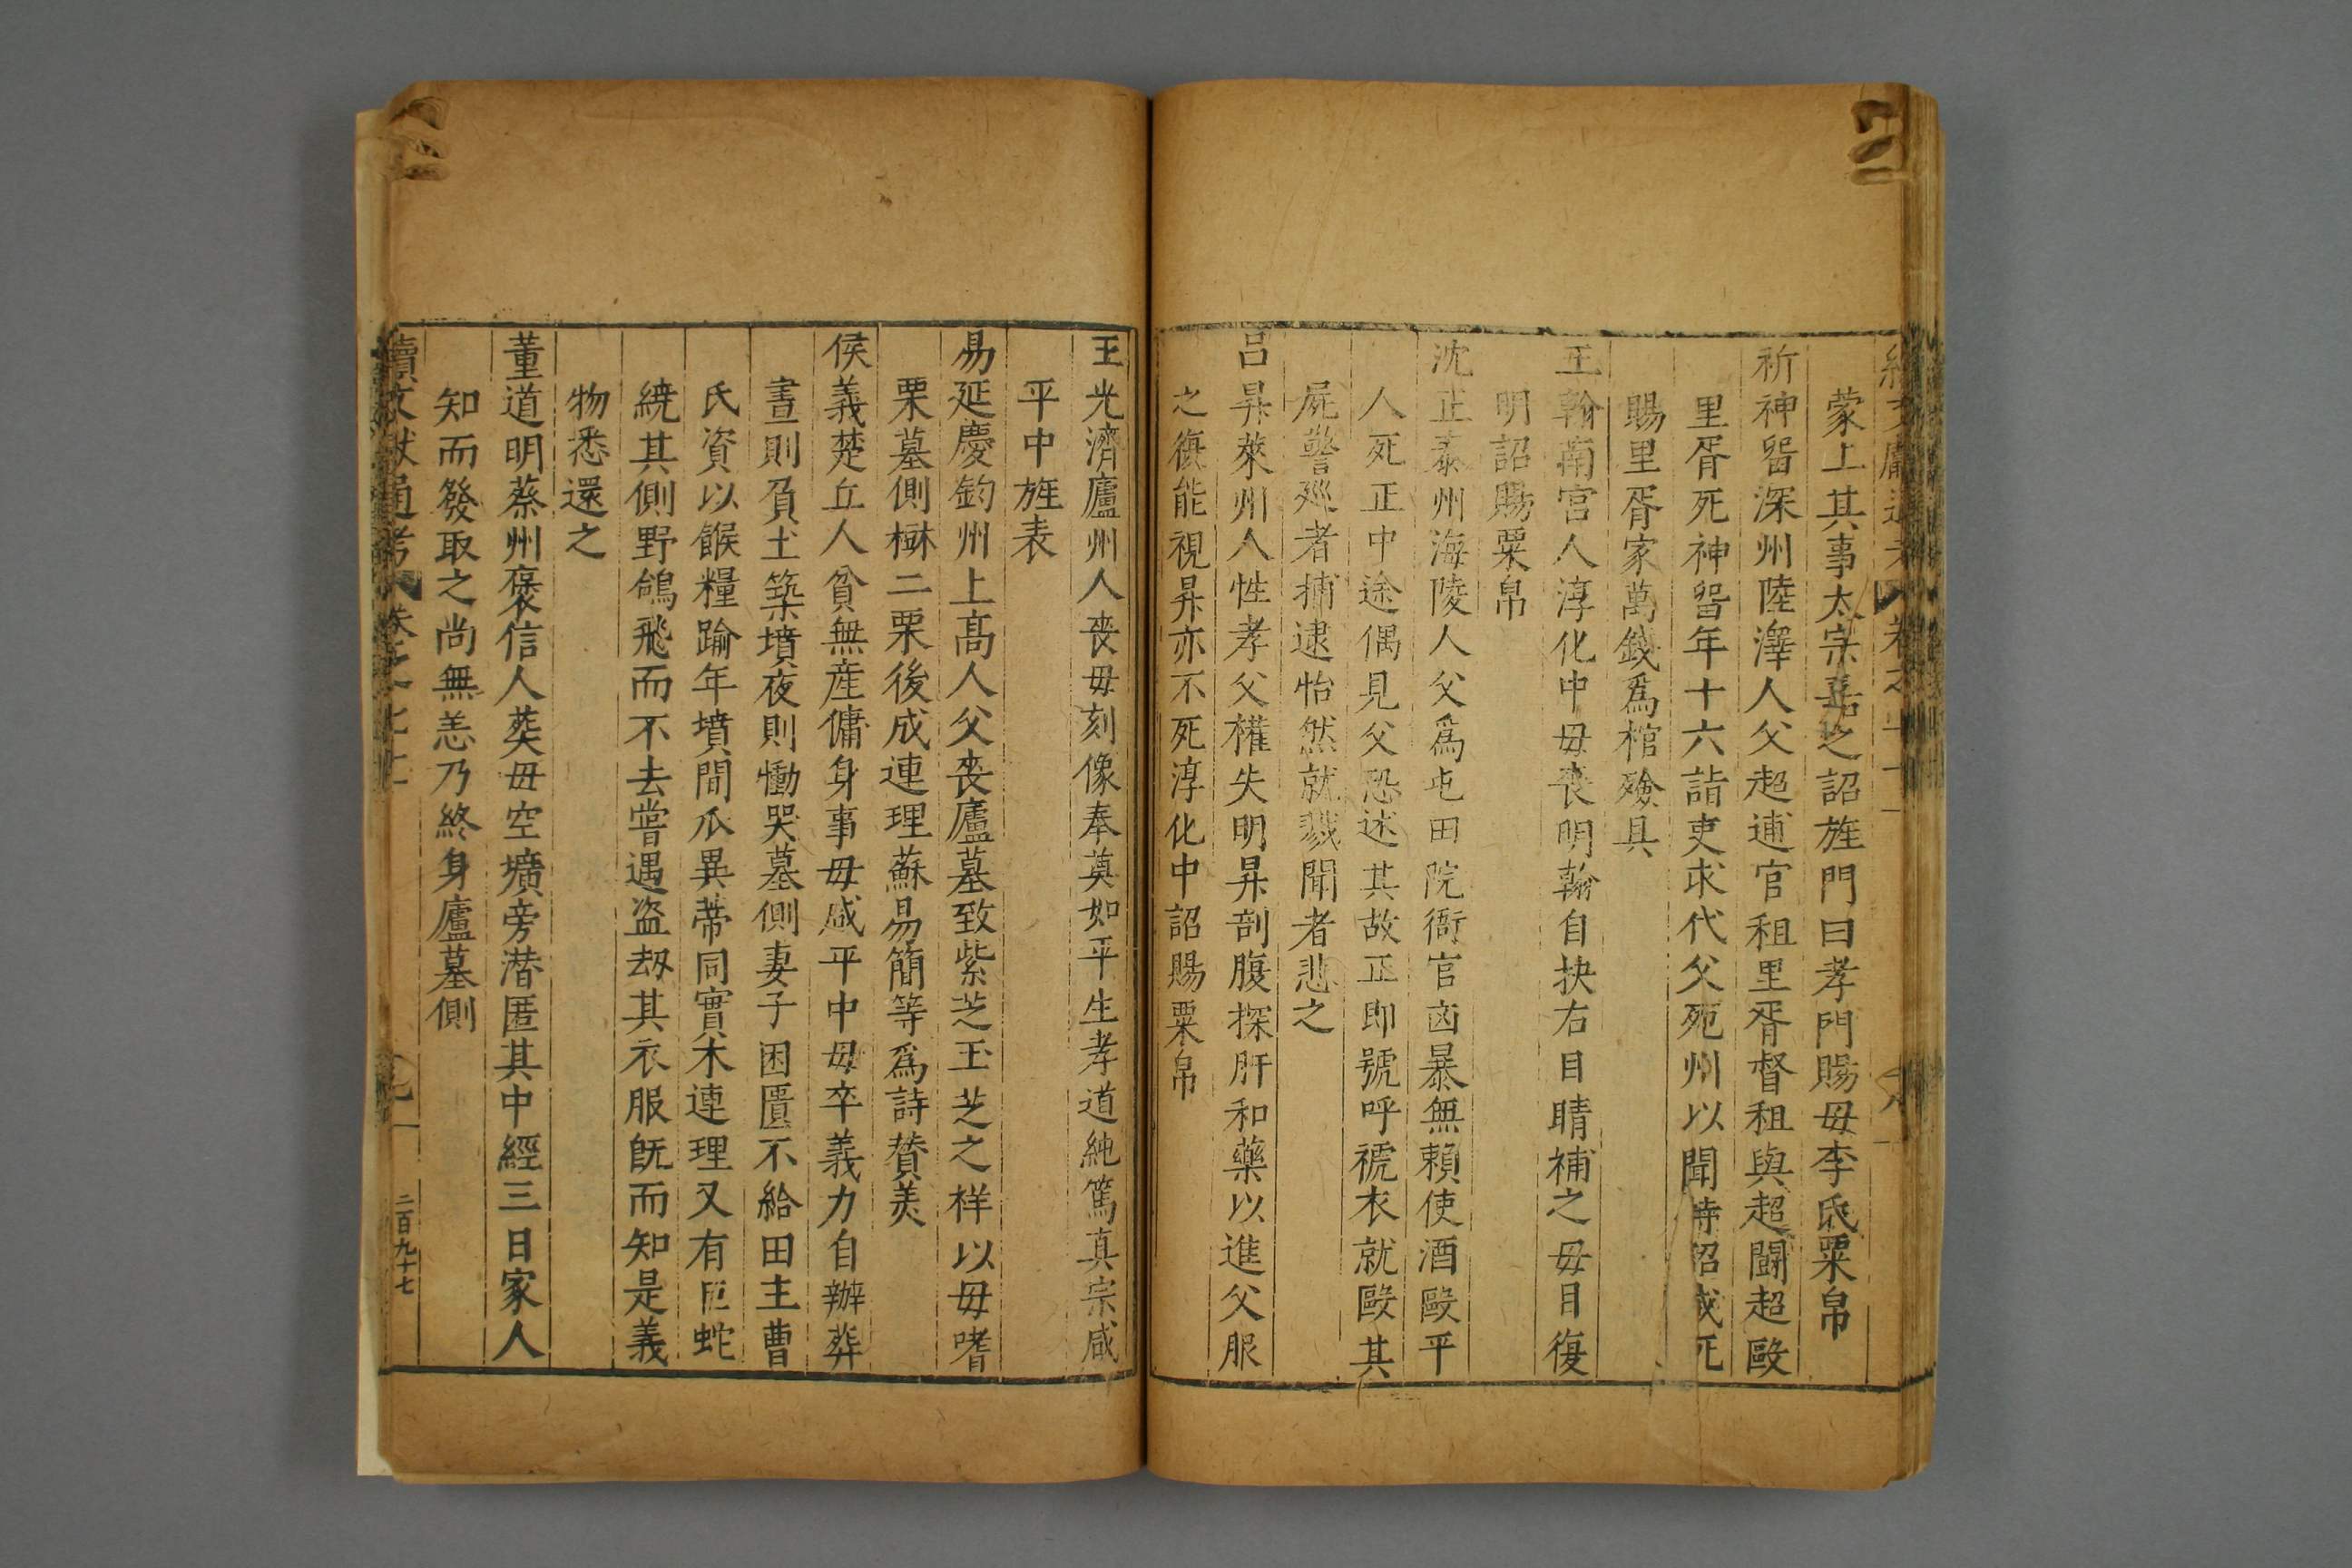 蒙上其事太宗嘉之詔旌門曰孝門賜母李氏粟帛
祈神畱深州陸澤人父超逋官租里胥督租與超鬬超毆
里胥死神畱年十六詣吏求代父死州以聞特詔減死
賜里胥家萬錢爲棺殮具
王翰南宫人淳化中母喪明翰自抉右目睛補之母目復
明詔賜粟帛
沈正泰州海陵人父爲屯田院衙官凶暴無賴使酒毆平
人死正中途偶見父恐述其故正即號呼褫衣就毆其
屍警廵者捕逮怡然就戮聞者悲之
吕昇萊州人性孝父權失明昇剖腹探肝和藥以進父服
之復能視昇亦不死淳化中詔賜粟帛
王光濟廬州人喪母刻像奉奠如平生孝道純篤真宗咸
平中旌表
易延慶鈞州上髙人父喪廬墓致紫芝玉芝之祥以母嗜
栗墓側樹二栗後成連理蘇易簡等爲詩賛羙
侯義楚丘人貧無産傭身事母咸平中母卒義力自辦葬
晝則負土築墳夜則慟哭墓側妻子困匱不給田主曹
氏資以餱糧踰年墳間瓜異蒂同實木連理又有巨蛇
繞其側野鴿飛而不去嘗遇盗刼其衣服旣而知是義
物悉還之
董道明蔡州褒信人葬母空壙旁潜匿其中經三日家人
知而發取之尚無恙乃終身廬墓側
續文獻通考 卷之七十一 九 二百九十七